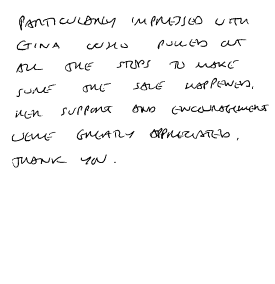 PARTICULARLY IMPRESSED WITH
GINA WHO PULLED OUT
ALL THE STOPS TO MAKE
SURE THE SALE HAPPENED.
HER SUPPORT AND ENCOURAGEMENT
WERE GREATLY APPRECIATED.
THANK YOU.